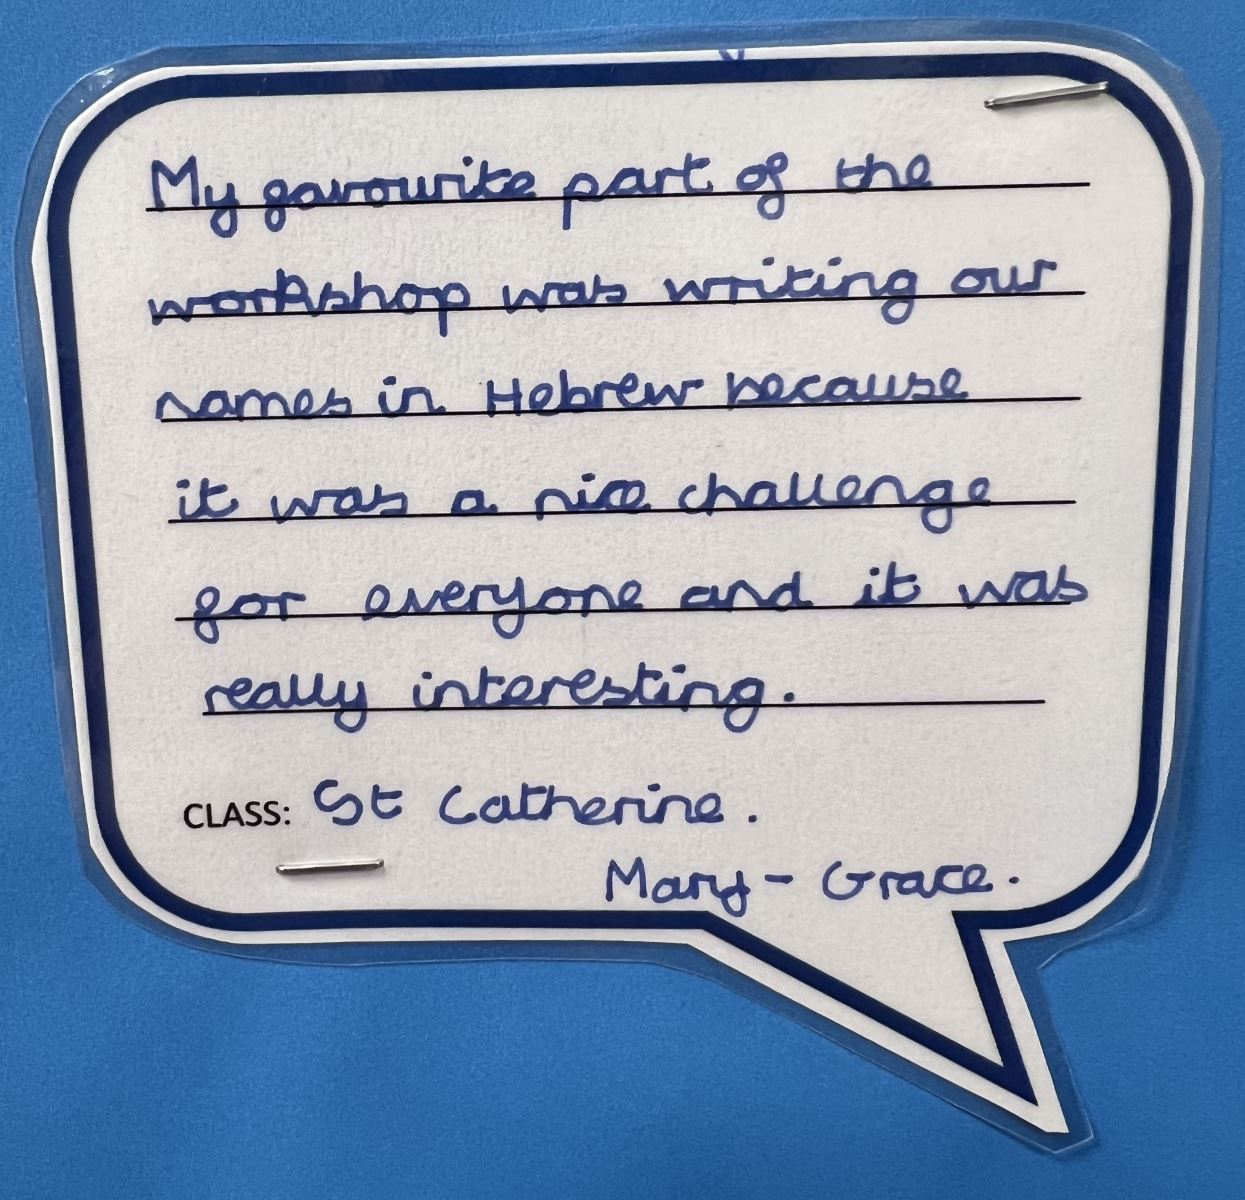 My favourite part of the
workshop was writing our
names in Hebrew because
it was a nice challenge
for everyone and it was
really interesting.
CLASS: St Catherine.
Mary-Grace.